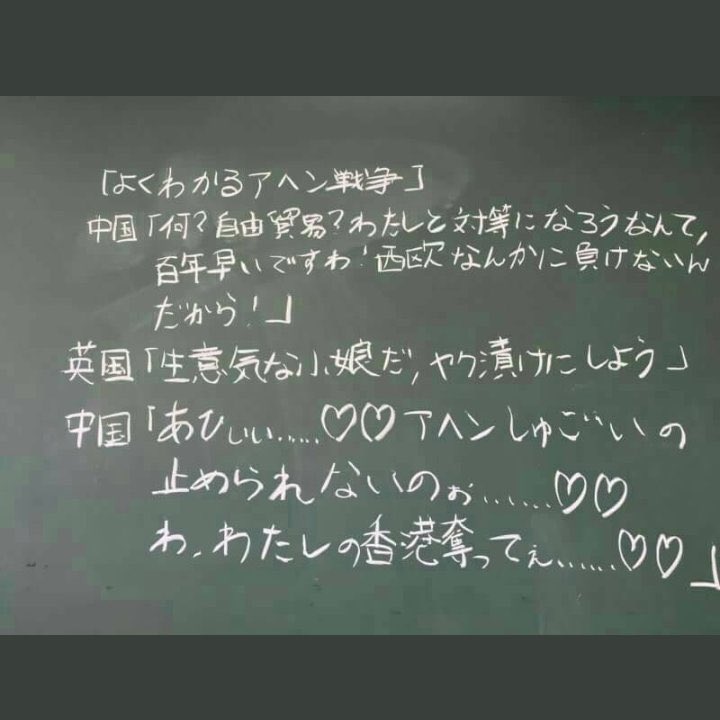 「よくわかるアヘン戦争」
中国「何?自由貿易?わたしと対等になろうなんて,
百年早いですわ!西欧なんかに負けないん
だから!」
英国「生意気な小娘だ,ヤク漬けにしよう」
中国「あひぃぃ......♡♡アヘンしゅごいの
止められないのぉ.......♡♡
わ、わたしの香港奪ってぇ.......♡♡」